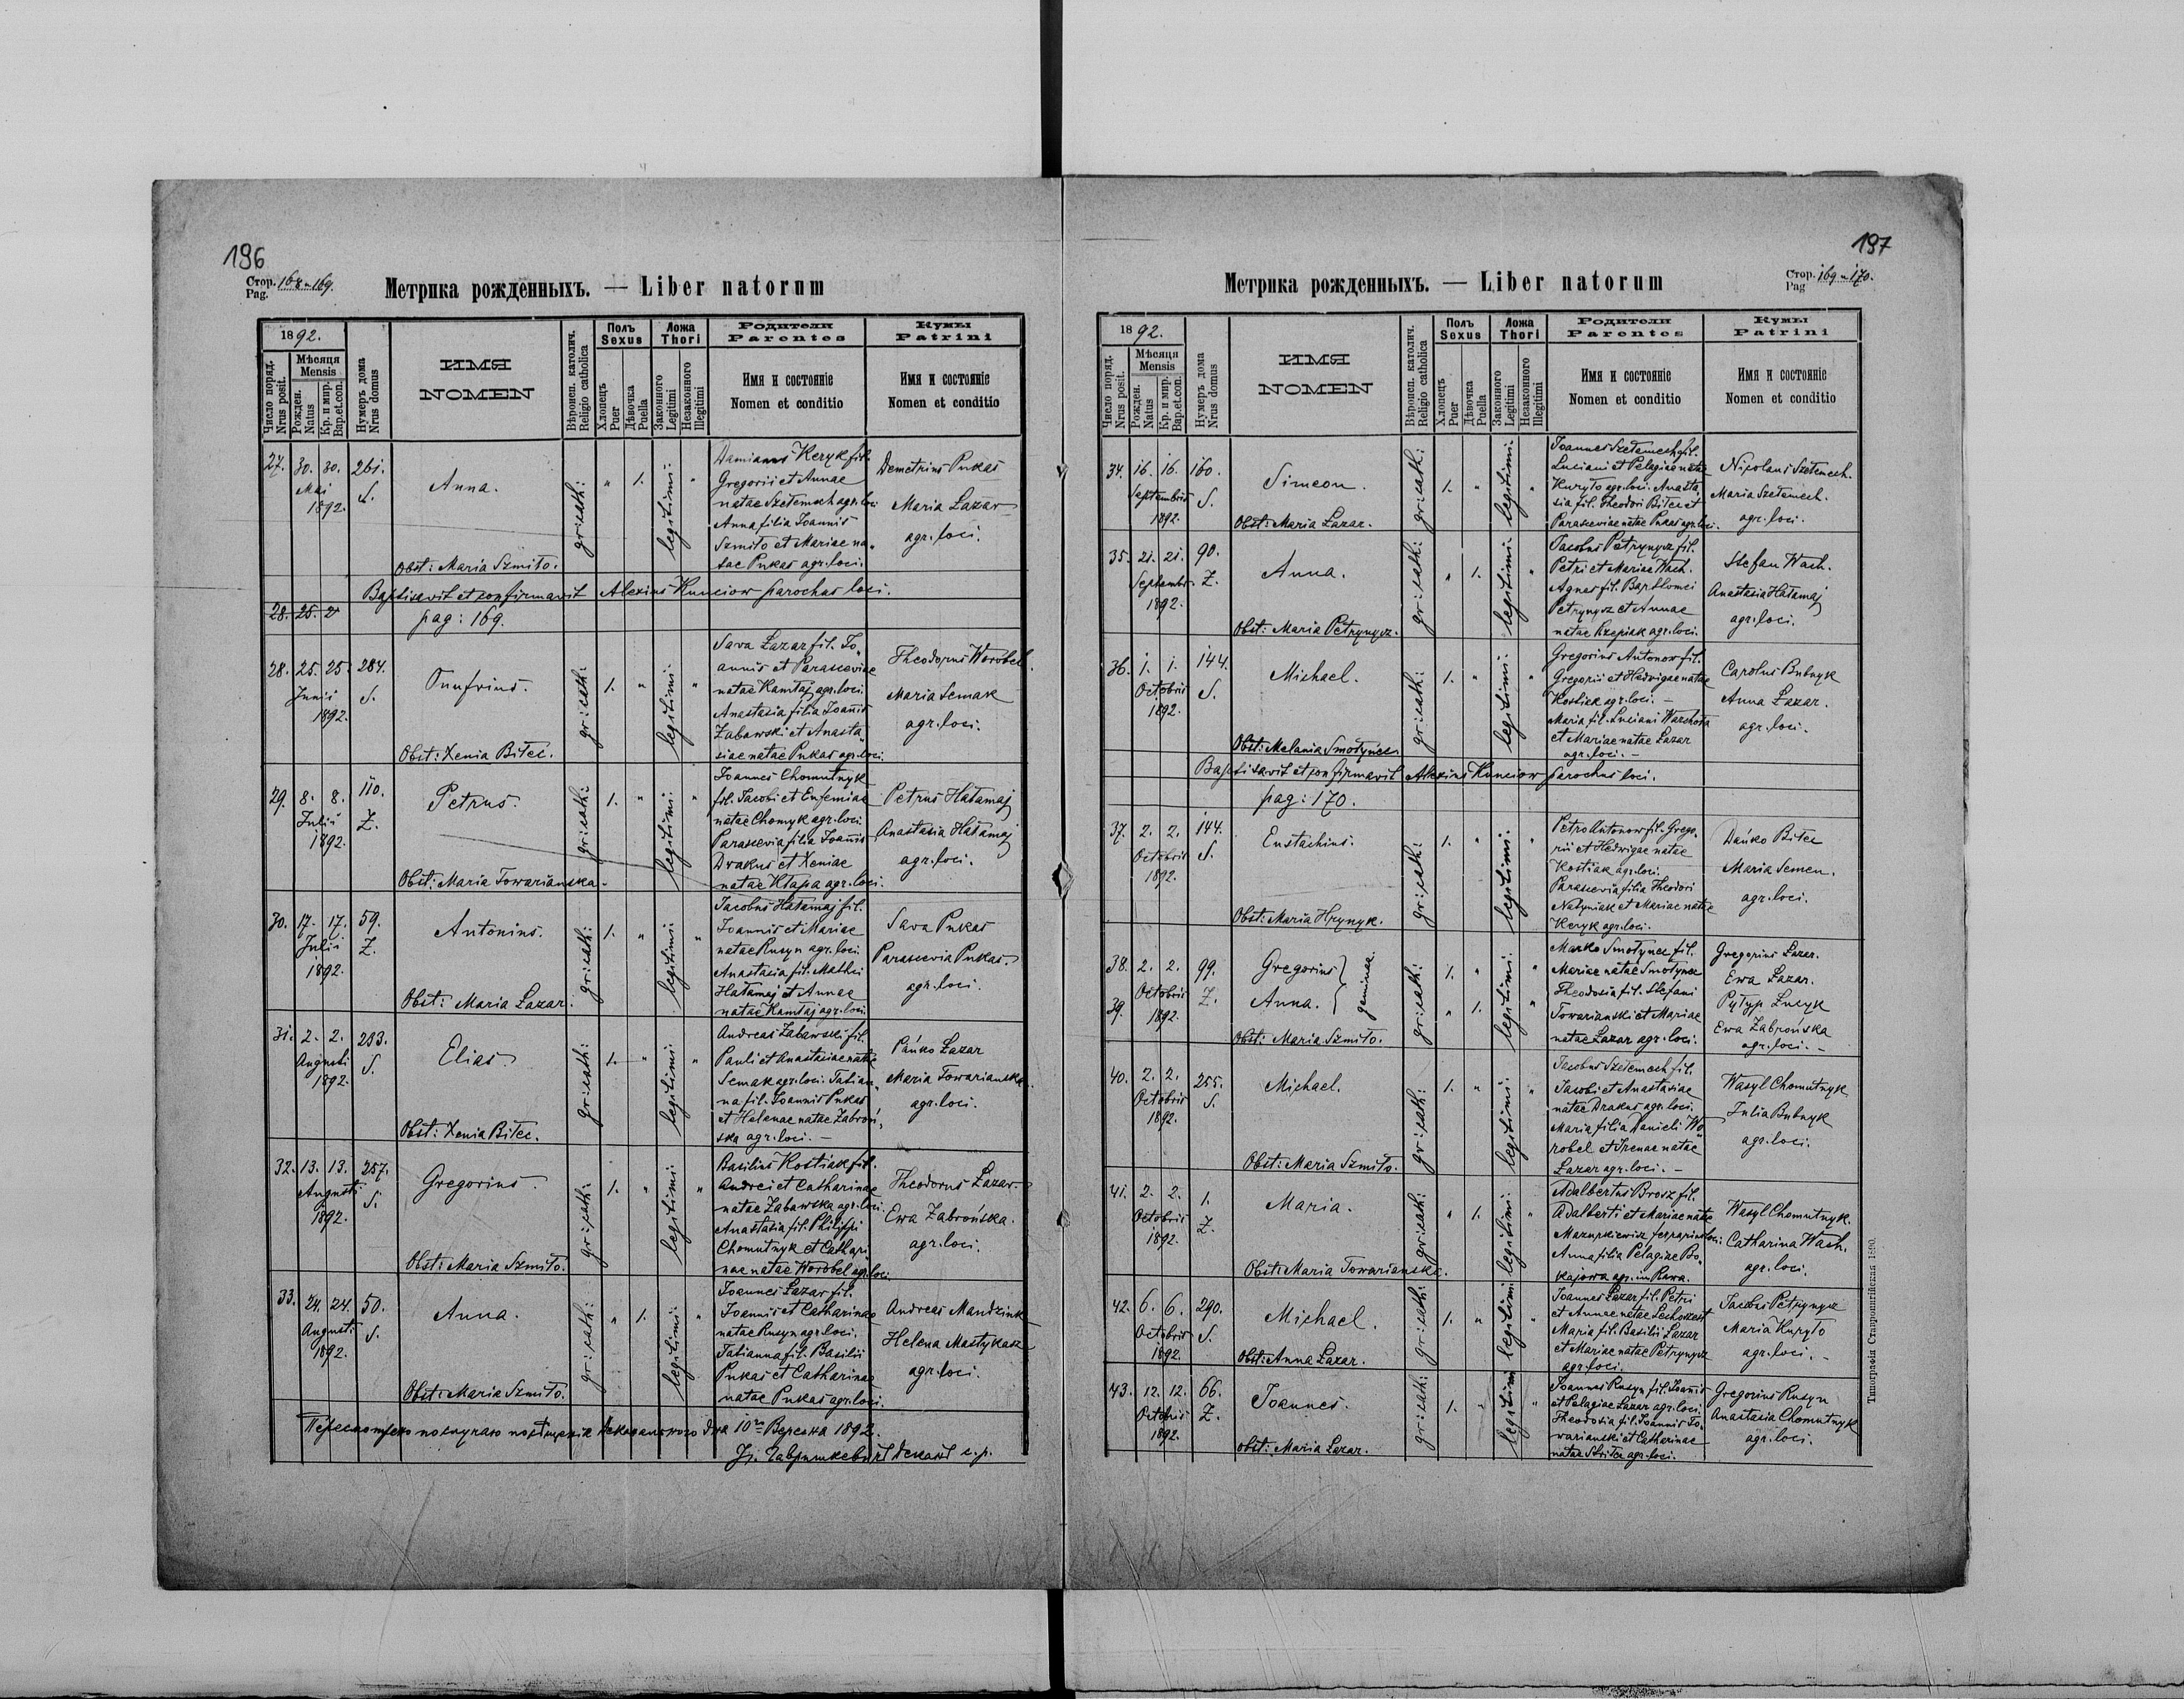 196
Стор. 168 и 169.
Pag.
Метрика рожденныхъ. — Liber natorum
1892.
Число поряд.
Nrus posit.
Мѣсяця
Mensis
Рожден.
Natus
Кр. и мир.
Bap.et.con.
Нумеръ дома
Nrus domus
ИМЯ
NOMEN
Вѣроисп. католич.
Religio catholica
Полъ
Sexus
Хлопецъ
Puer
Дѣвочка
Puella
Ложа
Thori
Законного
Legitimi
Незаконного
Illegitimi
Родители
Parentes
Имя и состояніе
Nomen et conditio
Кумы
Patrini
Имя и состояніе
Nomen et conditio
27. 30. 30. 261.
Mai S.
1892.
Anna.
Obst: Maria Szmiło.
gr: cath: „ 1. legitimi: „
Damianus Keryk fil.
Gregorii et Annae
natae Szełemech agr. loci
Anna filia Joannis
Szmiło et Mariae na„
tae Pukas agr. loci.
Demetrius Pukas
Maria Łazar
agr. loci.
Baptisavit et confirmavit Alexius Kunciow parochus loci.
28. 25. 2
pag: 169.
28. 25. 25. 284.
Junii S.
1892.
Onufrius.
Obst: Xenia Bitec.
gr: cath: 1. „ legitimi: „
Sava Łazar fil. Jo„
annis et Parasceviae
natae Kamtaj agr. loci.
Anastasia filia Joannis
Zabawski et Anasta„
siae natae Pukas agr. loci.
Theodorus Worobel.
Maria Semak
agr. loci.
29. 8. 8. 110.
Julii Z.
1892.
Petrus.
Obst: Maria Towarianska.
gr: cath: 1. „ legitimi: „
Joannes Chomutnyk
fil. Jacobi et Eufemiae
natae Chomyk agr. loci.
Parascevia filia Joannis
Drakus et Xeniae
natae Kłapa agr. loci.
Petrus Hałamaj
Anastasia Hałamaj
agr. loci.
30. 17. 17. 59.
Julii Z.
1892.
Antonius.
Obst: Maria Łazar.
gr: cath: 1. „ legitimi: „
Jacobus Hałamaj fil.
Joannis et Mariae
natae Rusyn agr. loci.
Anastasia fil. Mathei
Hałamaj et Annae
natae Kamtaj agr. loci.
Sava Pukas
Parascevia Pukas.
agr. loci.
31. 2. 2. 283.
Augusti S.
1892.
Elias
Obst: Xenia Bitec.
gr: cath: 1. „ legitimi: „
Andreas Zabawski fil.
Pauli et Anastasiae natae
Semak agr. loci. Tatian„
na fil. Joannis Pukas
et Helenae natae Zabroń„
ska agr. loci. —
Pańko Łazar
Maria Towarianska.
agr. loci.
32. 13. 13. 257.
Augusti S.
1892.
Gregorius.
Obst: Maria Szmiło.
gr: cath: 1. „ legitimi: „
Basilius Kostiak fil.
Andrei et Catharinae
natae Zabawska agr. loci.
Anastasia fil. Philippi
Chomutnyk et Cathari
nae natae Worobel agr. loci.
Theodorus Łazar.
Ewa Zabrońska.
agr. loci.
33. 24. 24. 50.
Augusti S.
1892.
Anna.
Obst: Maria Szmiło.
gr: cath: „ 1. legitimi: „
Joannes Łazar fil.
Joannis et Catharinae
natae Rusyn agr. loci.
Tatianna fil. Basilii
Pukas et Catharinae
natae Pukas agr. loci.
Andreas Mandziuk
Helena Mastykasz
agr. loci.
дня 10го Вересня 1892.
197
Стор. 169 и 170.
Pag
Метрика рожденныхъ. — Liber natorum
1892.
Число поряд.
Nrus posit.
Мѣсяця
Mensis
Рожден.
Natus
Кр. и мир.
Bap.et.con.
Нумеръ дома
Nrus domus
ИМЯ
NOMEN
Вѣроисп. католич.
Religio catholica
Полъ
Sexus
Хлопецъ
Puer
Дѣвочка
Puella
Ложа
Thori
Законного
Legitimi
Незаконного
Illegitimi
Родители
Parentes
Имя и состояніе
Nomen et conditio
Кумы
Patrini
Имя и состояніе
Nomen et conditio
34. 16. 16. 160.
Septembris S.
1892.
Simeon.
Obst: Maria Łazar.
gr: cath: 1. „ legitimi: „
Joannes Szełemech fil.
Luciani et Pelagiae natae
Kuryło agr. loci. Anasta„
sia fil. Theodori Bitec et
Parasceviae natae Pukas agr. loci.
Nicolaus Szełemech.
Maria Szełemech.
agr. loci.
35. 21. 21. 90.
Septembr. Z.
1892.
Anna.
Obst: Maria Petrynycz.
gr: cath: „ 1. legitimi: „
Jacobus Petrynycz fil.
Petri et Mariae Wach.
Agnes fil. Bartłomei
Petrynycz et Annae
natae Rzepiak agr. loci.
Stefan Wach.
Anastasia Hałamaj
agr. loci.
36. 1. 1. 144.
Octobris S.
1892.
Michael.
Obst: Melania Smołynec.
gr: cath: 1. „ legitimi: „
Gregorius Antonow fil.
Gregorii et Hedvigae natae
Kostiak agr. loci. —
Maria fil. Luciani Warchoła
et Mariae natae Łazar
agr. loci. —
Carolus Bubnyk
Anna Łazar.
agr. loci.
Baptisavit et confirmavit Alexius Kunciow parochus loci.
pag: 170.
37. 2. 2. 144.
Octobris S.
1892.
Eustachius.
Obst: Maria Hrynyk.
gr: cath: 1. „ legitimi: „
Petro Antonow fil. Grego„
rii et Hedwigae natae
Kostiak agr. loci.
Parascevia filia Theodori
Natyniak et Mariae natae
Keryk agr. loci.
Dańko Bitec
Maria Semen.
agr. loci.
38. 2. 2. 99.
39. Octobris Z.
1892.
Gregorius
Anna.
geminea.
Obst: Maria Szmiło.
gr: cath: 1. „ legitimi: „
„ 1. „
Marko Smołynec fil.
Mariae natae Smołynec
Theodosia fil. Stefani
Towarianski et Mariae
natae Łazar agr. loci.
Gregorius Łazar.
Ewa Łazar.
Pyłyp Lucyk
Ewa Zabrońska
agr. loci. —
40. 2. 2. 255.
Octobris S.
1892.
Michael.
Obst: Maria Szmiło.
gr: cath: 1. „ legitimi: „
Jacobus Szełemech fil.
Jacobi et Anastasiae
natae Drakus agr. loci.
Maria filia Danieli Wo„
robel et Irenae natae
Łazar agr. loci. —
Wasyl Chomutnyk
Julia Bubnyk
agr. loci.
41. 2. 2. 1.
Octobris Z.
1892.
Maria.
Obst: Maria Towarianska.
gr: cath: „ 1. legitimi: „
Adalbertus Brosz fil.
Adalberti et Mariae natae
Mazurkiewicz loci.
Anna filia Pelagiae Bo„
kajowa agr. in Rawa.
Wasyl Chomutnyk.
Catharina Wach.
agr. loci.
42. 6. 6. 290.
Octobris S.
1892.
Michael.
Obst: Anna Łazar.
gr: cath: 1. „ legitimi „
Joannes Łazar fil. Petri
et Annae natae
Maria fil. Basilii Łazar
et Mariae natae Petrynycz
agr. loci.
Jacobus Petrynycz
Maria Kuryło
agr. loci. —
43. 12. 12. 66.
Octobris Z.
1892.
Joannes.
Obst: Maria Łazar.
gr: cath: 1. „ legitimi „
Joannes Rusyn fil. Joannis
et Pelagiae Łazar agr. loci.
Theodosia fil. Joannis To„
warianski et Catharinae
natae agr. loci.
Gregorius Rusyn
Anastasia Chomutnyk
agr. loci.
Типографія Ставропигійская 1890.